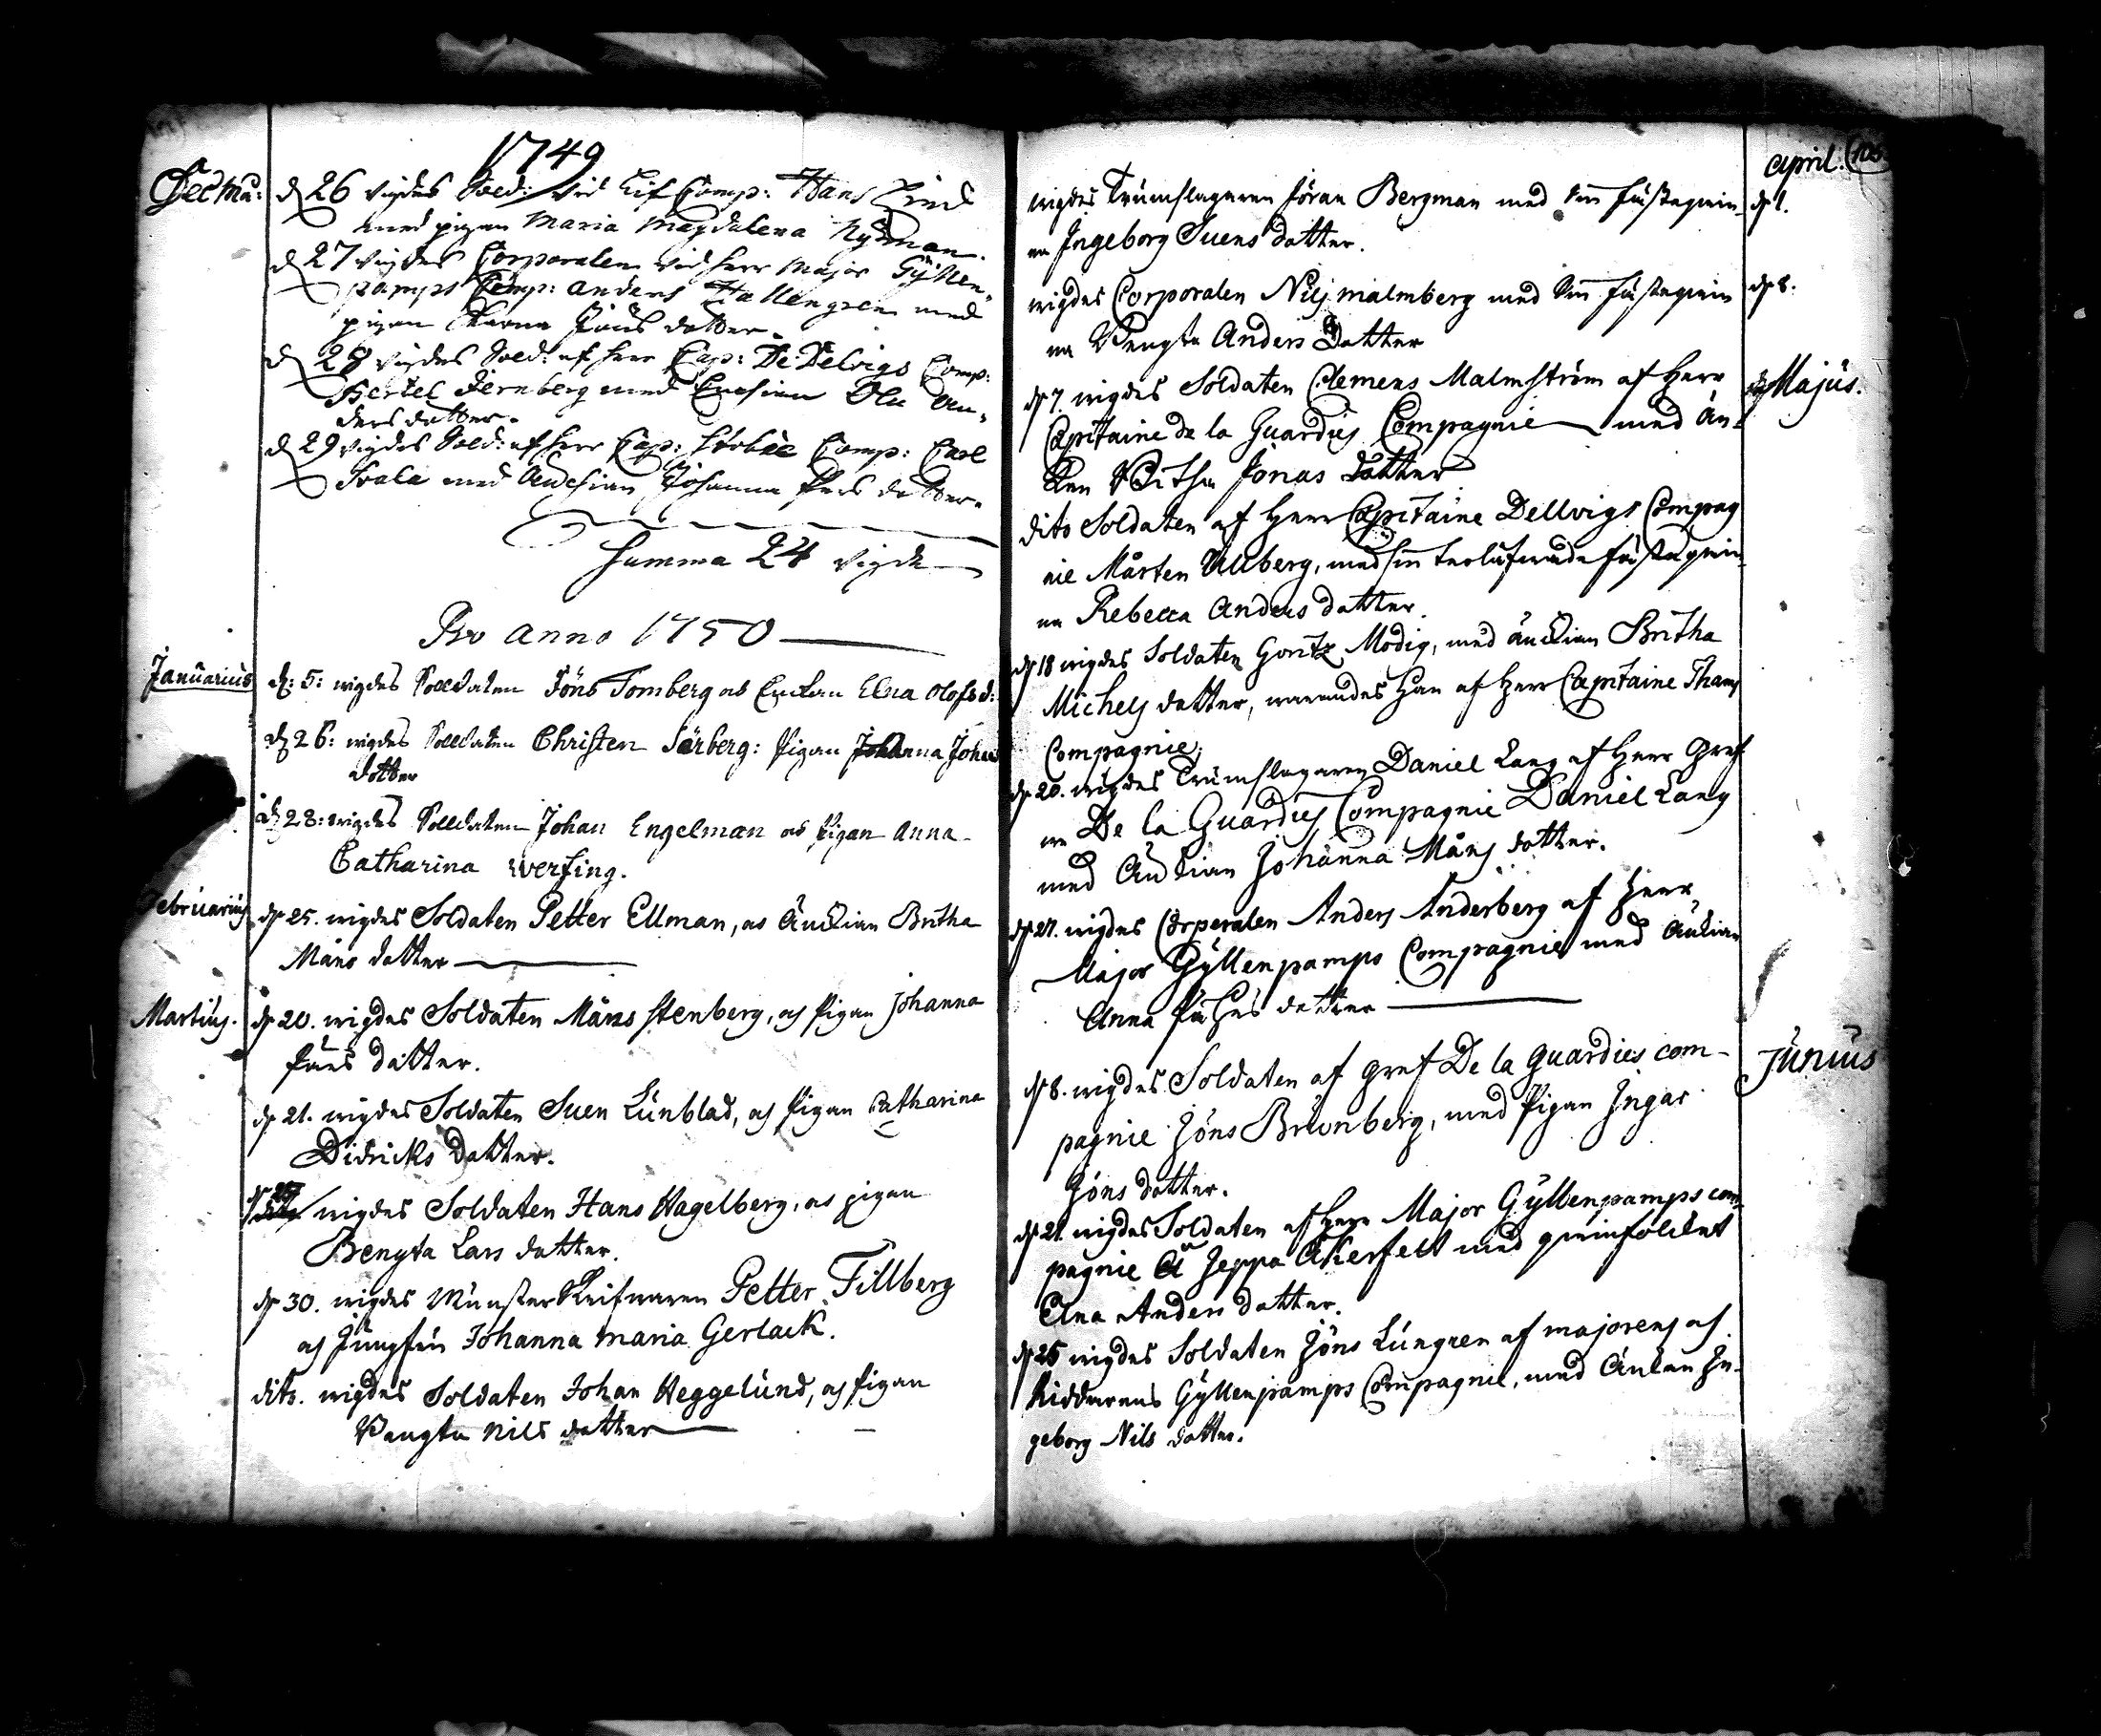 1749
Decmb:
d 26 vigdes Sold: vid Lif Comp: Hans Lind
med pigan Maria Magdalena Nyman.
d 27 vigdes Corporalen vid herr Major Gÿllen-
pamps Comp: Anders Hallengren med
pigan Karna Jöns dotter.
d 28 vigdes Sold: af herr Cap: De Delvigs Comp:
Bertel Fernberg med Enckian Ola An-
ders dotter.
d 29 vigdes Sold: af herr Cap: Comp: Carl
Svala med Enckian Johanna Pers dotter.
Summa 24 vigde
Pro Anno 1750
Januarius
d: 5: wigdes Solldaten Jöns Tomberg och Enckan Elna Olofs d:
d 26: wigdes Solldaten Christen Sörberg: Pigan Johanna Johans
dotter
d 28: wigdes Solldaten Johan Engelman och Pigan Anna
Catharina Werfing.
Februarius
d 25. wigdes Soldaten Petter Ellman, och Änckian Britha
Måns dotter
Martius.
d 20. wigdes Soldaten Måns Stenberg, och Pigan Johanna
Påls dotter.
d 21. wigdes Soldaten Suen Lünblad, och Pigan Catharina
Didricks dotter.
d 25 wigdes Soldaten Hans Hagelberg, och pigan
Bengta Lars dotter.
d 30. wigdes MünsterSkrifwaren Petter Fillberg
och Jungfru Johanna Maria Gerlack.
dito. wigdes Soldaten Johan Heggelünd, och Pigan
Bengta Nils dotter
April. 105
wigdes Trümslagaren Jöran Bergman med sin fästeqwin- d 1.
na Ingeborg Suens dotter.
wigdes Corporalen Nils Malmberg med sin fästeqwin d 8.
na Bengta Anders Dotter
d 7. wigdes Soldaten Clemens Malmström af Herr Majus.
Capitaine de la Guardies Compagnie med än-
kan Britha Jonas dotter
dito Soldaten af Herr Capitaine Dellvigs Compag
nie Mårten Ullberg, med sin trolåfwade fästeqwin-
na Rebecca Anders dotter.
d 18 wigdes Soldaten Goritz Modig, med änckian Britha
Michels dotter, warandes han af Herr Capitaine Thams
Compagnie.
d 20. wigdes Trümslagaren Daniel Lang af Herr Gref
we De la Guardies Compagnie Daniel Lang
med Änckian Johanna Måns dotter.
d 27. wigdes Corporalen Anders Anderberg af Herr
Major Gÿllenpamps Compagnie med Änkian
Anna dotter
Junius
d 8. wigdes Soldaten af Gref De la Guardies com-
pagnie Jöns Brünberg, med Pigan Ingar
Jöns dotter.
d 21 wigdes Soldaten af Herr Major Gÿllenpamps com-
pagnie Jeppa Åkerfelt med qwinfolcket
Elna Anders dotter.
d 25 wigdes Soldaten Jöns Lüngren af Majorens och
Riddarens Gÿllenpamps Compagnie, med Änkan In-
geborg Nils dotter.